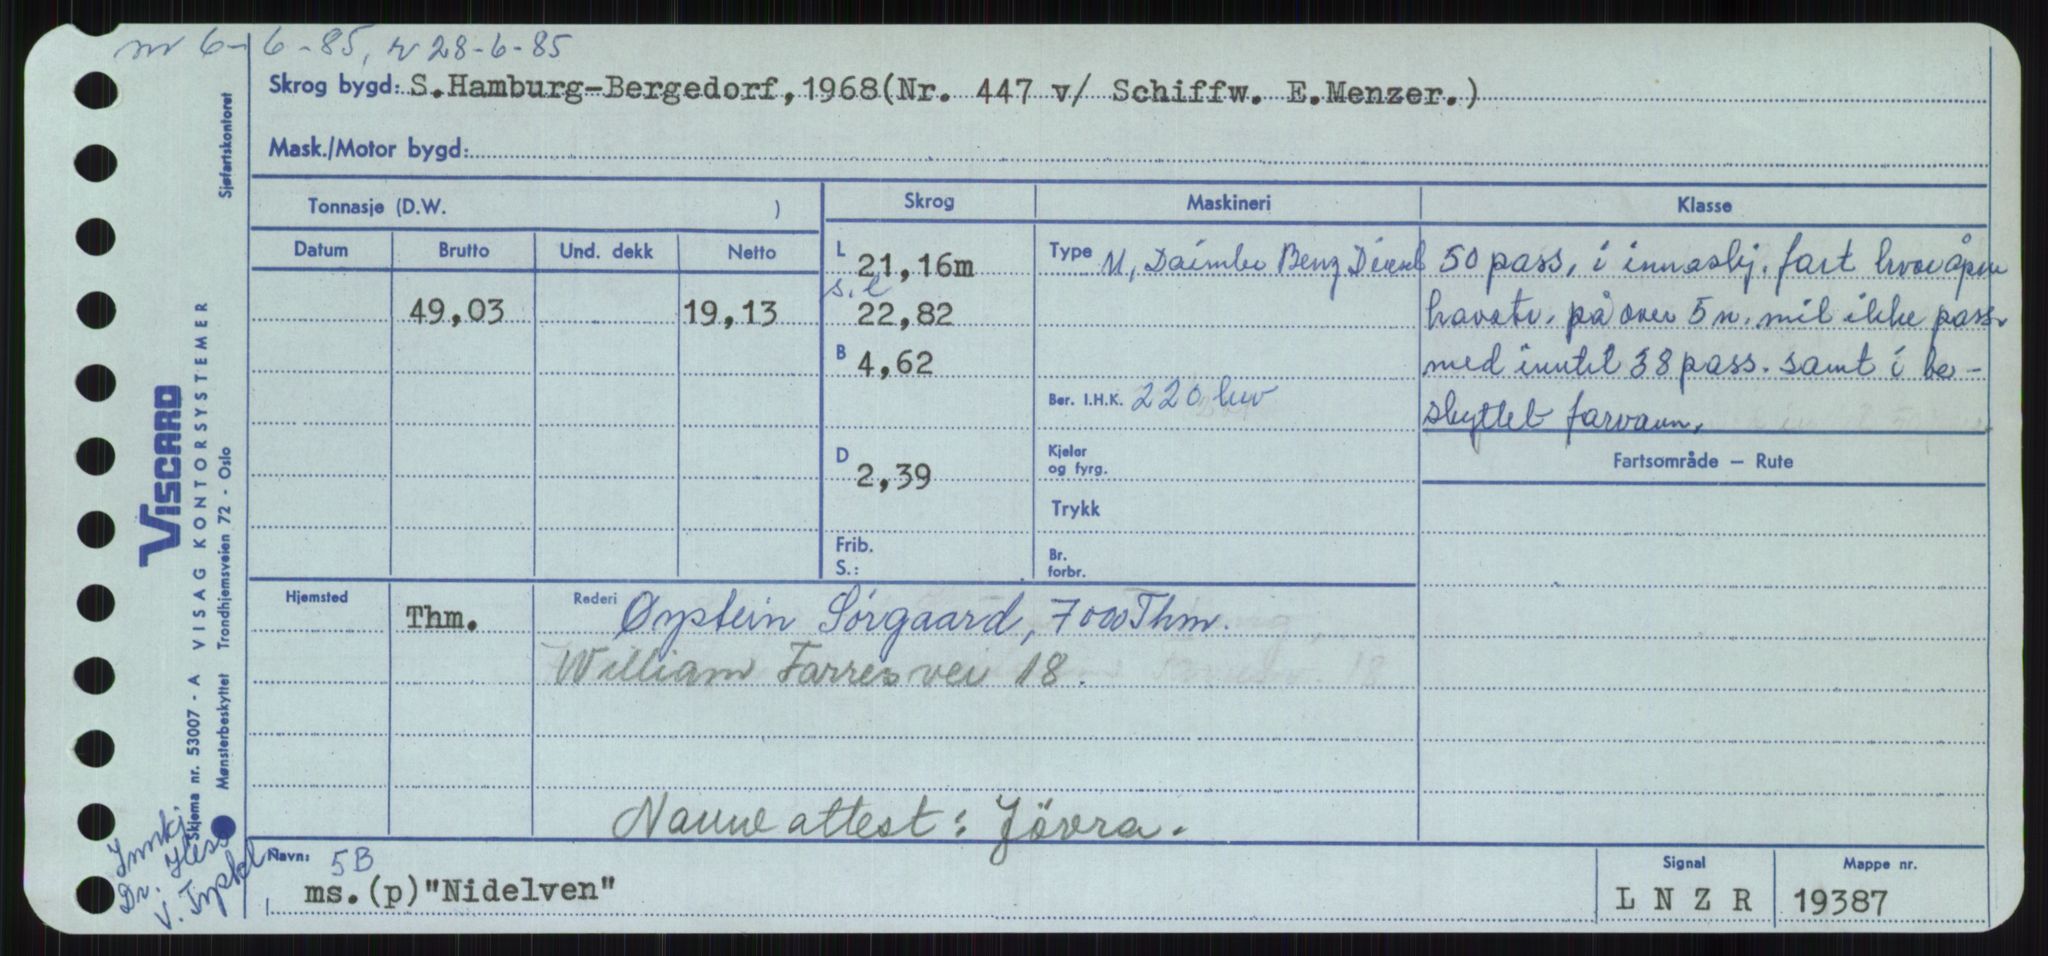 6-6-85, 28-6-85
Skrog bygd: S.Hamburg-Bergedorf, 1968(Nr. 447 v/ Schiffw. E.Menzer.)
Mask./Motor bygd:
Tonnasje (D.W. )
Skrog
Maskineri
Klasse
Datum Brutto Und. dekk Netto
49,03 19,13
L 21,16m
s.l 22,82
B 4,62
D 2,39
Frib.
S.:
Type M, Daimler Benz Diesel
Ber. I.H.K. 220 hw
Kjeler
og fyrg.
Trykk
Br.
forbr.
50 pass, i innaskj. fart hvor åpne
havstr. på over 5 n. mil ikke pass.
med inntil 38 pass. samt i be-
skyttet farvann.
Fartsområde – Rute
Hjemsted Thm.
Rederi Øystein Sörgaard, 7000 Thm.
William Farres vei 18.
Navne attest: Jövra.
Navn: 5B
ms.(p)"Nidelven"
Signal
L N Z R
Mappe nr.
19387
Sjøfartskontoret
VISCARD
VISAG KONTORSYSTEMER
Skjema nr. 53007 - A
Mønsterbeskyttet Trondhjemsveien 72 - Oslo
Innkj.
Dr.
v.